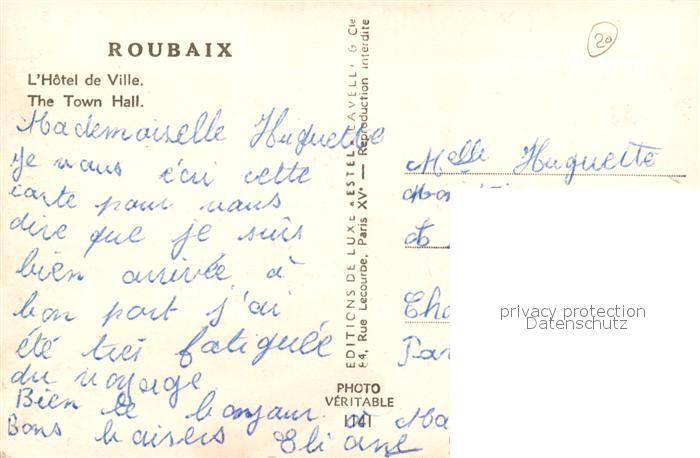 ROUBAIX
L'Hôtel de Ville.
The Town Hall.
Mademoiselle Huguette
je vous écri cette
carte pour vous
dire que je suis
bien arrivée à
bon port j'ai
été très fatiguée
du voyage
Bien le bonjour à Ma
Bons baisers Eliane
EDITIONS DE LUXE "ESTEL" LAVELLE & Cie
84, Rue Lecourbe, Paris XVe — Reproduction interdite
PHOTO
VÉRITABLE
L141
20
Melle Huguette
Cha
Par
privacy protection
Datenschutz